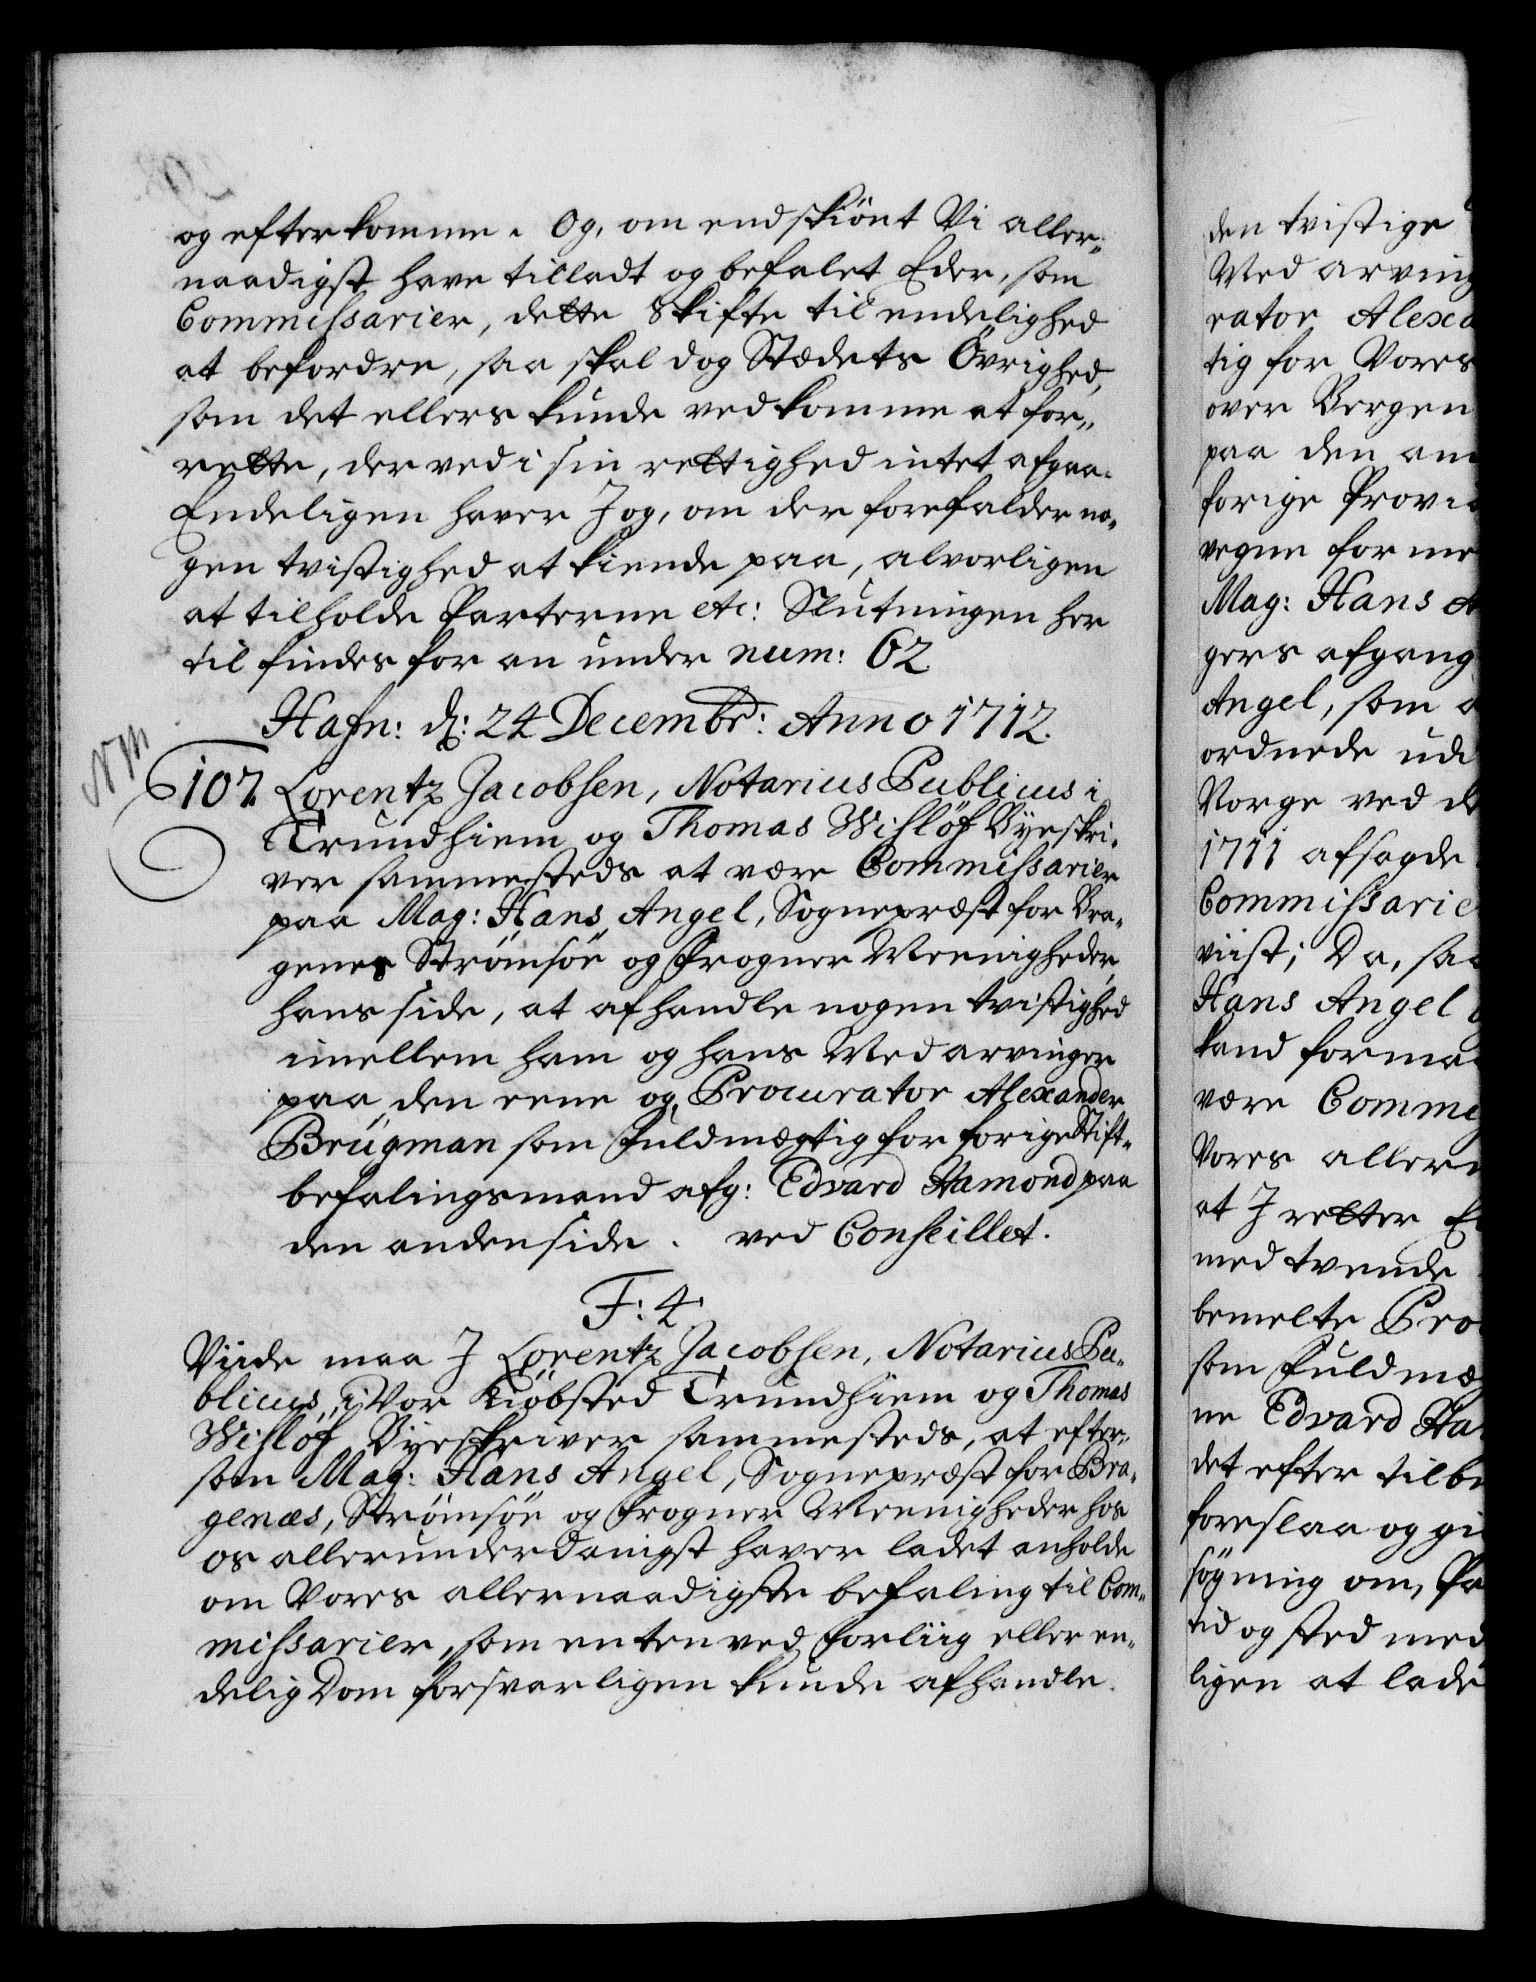 og efterkomme. Og, om endskiönt Vi aller„
naadigst have tilladt og befalet Eder, som
Commissarier, dette Skifte til endelighed
at befordre, saa skal dog Stædets Övrighed,
som det ellers kunde vedkomme at for„
rette, derved i sin rettighed intet afgaa.
Endeligen haver I og, om der forefalder no„
gen tvistighed at kiende paa, alvorligen
at tilholde Parterne etc: Slutningen her
til findes for an under num: 62
Hafn: d: 24 Decembr: Anno 1712.
NM
107. Lorentz Jacobsen, Notarius Publicus i
Trundhiem og Thomas Wislöf Byeskri„
ver sammesteds at være Commissarier
paa Mag: Hans Angel, Sognepræst for Bra„
genes Strömsöe og Frogner Meenigheder,
hans side, at afhandle nogen tvistighed
imellem ham og hans Medarvinger
paa den eene og Procurator Alexander
Brügman som Fuldmægtig for forige Stift„
befalingsmand afg: Edvard Hamond paa
den anden side. ved Conseillet.
F: 4.
Viide maa I Lorentz Jacobsen, Notarius Pu„
blicus i Vor Kiöbsted Trundhiem og Thomas
Wislöf Byeskriver sammesteds, at efter„
som Mag: Hans Angel, Sognepræst for Bra„
genæs, Strömsöe og Frogner Meenigheder hos
os allerunderdanigst haver ladet anholde
om Vores allernaadigste befaling til Com„
missarier, som enten ved forliig eller en„
delig Dom forsvarligen kunde afhandle
den tvistige
Med arving
rator Alexa
tig for Vores
over Bergen
paa den an
forige Provi
vegne for me
Mag: Hans A
gers afgang
Angel, som
ordnede udi
Norge ved d
1711 afsagde
Commissarie
viist; Da, saa
Hans Angel
kand forma
være Commi
Vores allern
at I retter E
med tvende
bemelte Pro
som Fuldmæ
ne Edvard Ha
det efter tilb
foreslaa og gi
sögning om, Pa
tid og sted med
ligen at lade